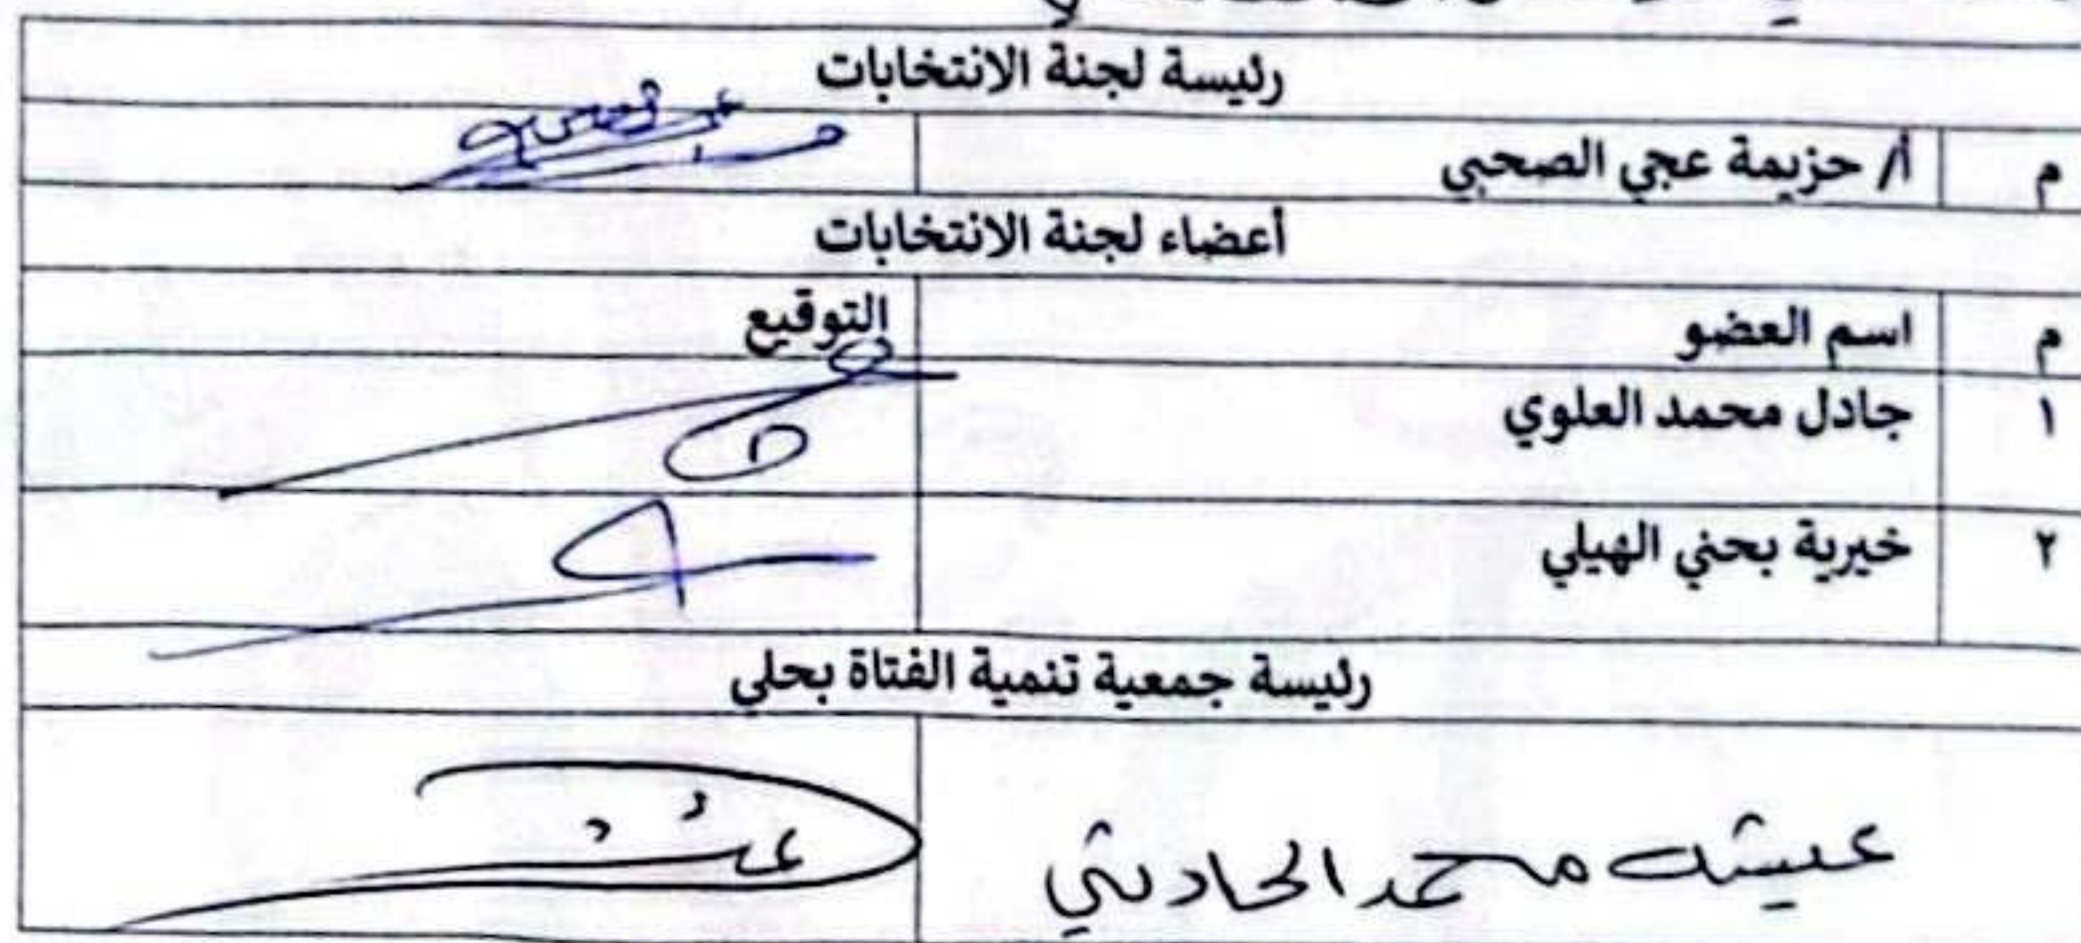 رئيسة لجنة الانتخابات
م أ/ حزيمة عجي الصحبي
أعضاء لجنة الانتخابات
م اسم العضو التوقيع
١ جادل محمد العلوي
٢ خيرية بحني الهيلي
رئيسة جمعية تنمية الفتاة بحلي
عيشه محمد الحاديثي